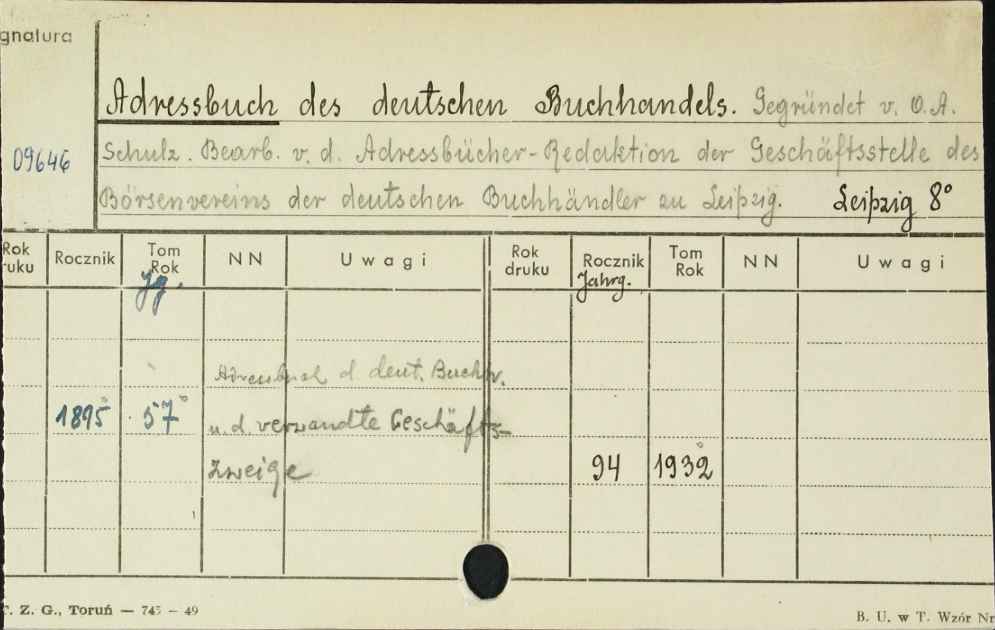 gnatura
Adressbuch des deutschen Buchhandels. Gegründet v. O. A.
09646 Schulz. Bearb. v. d. Adressbücher-Redaktion der Geschäftsstelle des
Börsenvereins der deutschen Buchhändler zu Leipzig. Leipzig 8°
Rok druku Rocznik Tom Rok NN Uwagi Rok druku Rocznik Tom Rok NN Uwagi
Jg. Jahrg.
d. deut. Buchh.
1895 57 u. d. verwandte Geschäfts-
zweige 94 1932
T. Z. G., Toruń — 745 — 49 B. U. w T. Wzór Nr